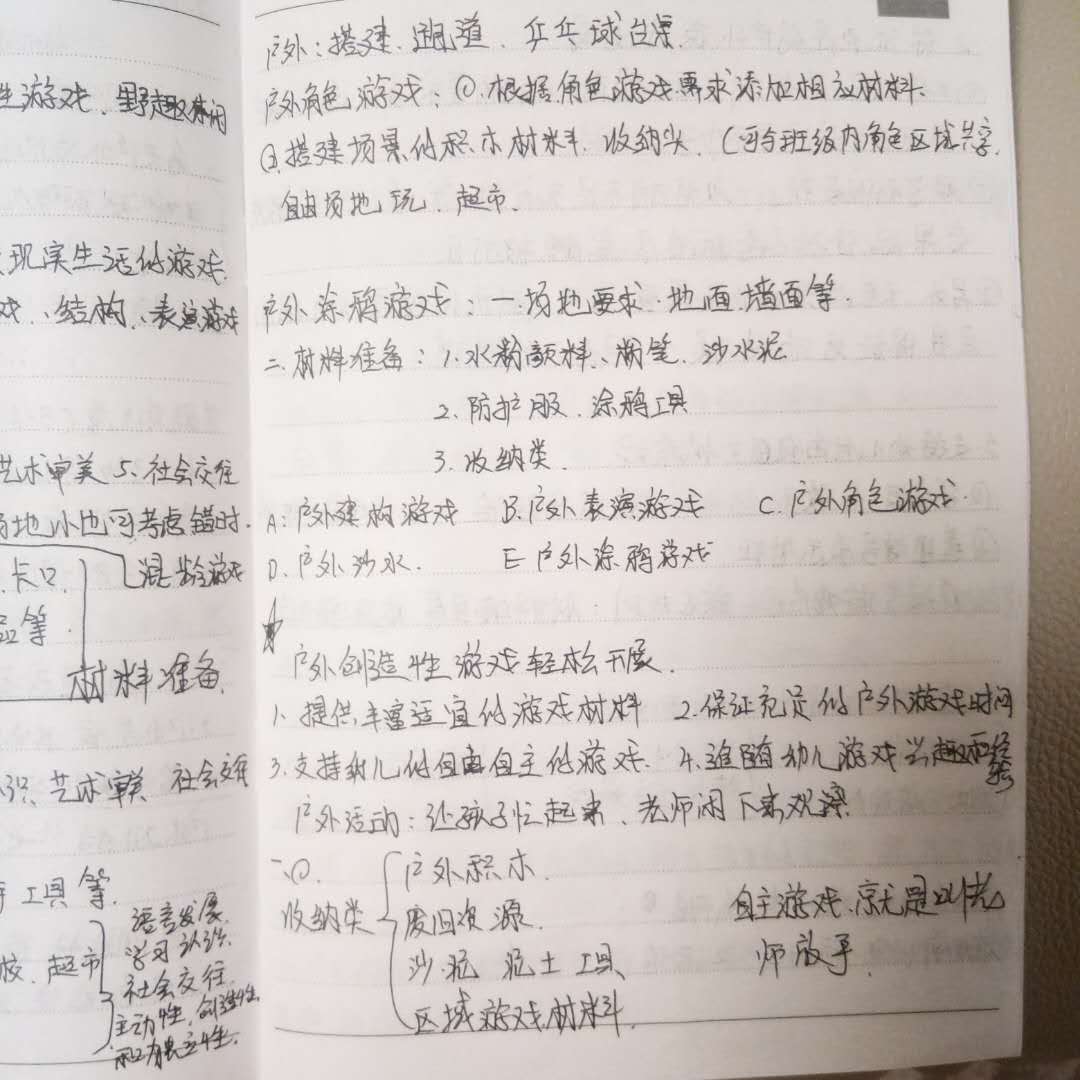 生游戏、野趣休闲
现实生活的游戏.
戏、结构、表演游戏
艺术审美 5.社会交往
场地小也可考虑错时.
卡口. 混龄游戏
等.
材料准备.
识 艺术审美 社会交往
工具等.
校、超市
语言发展.
学习认识.
社会交往.
主动性,创造性
和独立性.
户外:搭建、跑道、乒乓球台桌.
户外角色游戏:①.根据角色游戏需求添加相应材料.
②.搭建场景的积木材料.收纳类.(可与班级内角色区域共享.
自由场地玩、超市.
户外涂鸦游戏:一.场地要求.地面.墙面等.
二.材料准备:1.水粉颜料、粉笔、沙水泥
2.防护服.涂鸦工具
3.收纳类.
A:户外建构游戏 B.户外表演游戏 C.户外角色游戏.
D.户外沙水. E 户外涂鸦游戏
户外创造性游戏轻松开展.
1.提供丰富适宜的游戏材料 2.保证充足的户外游戏时间
3.支持幼儿的自由自主的游戏. 4.追随幼儿游戏兴趣和经验
户外活动:让孩子忙起来、老师闲下来观察.
一①.
收纳类
户外积木.
废旧资源.
沙泥 泥土 工具
区域游戏材料.
自主游戏.就是以老
师放手.